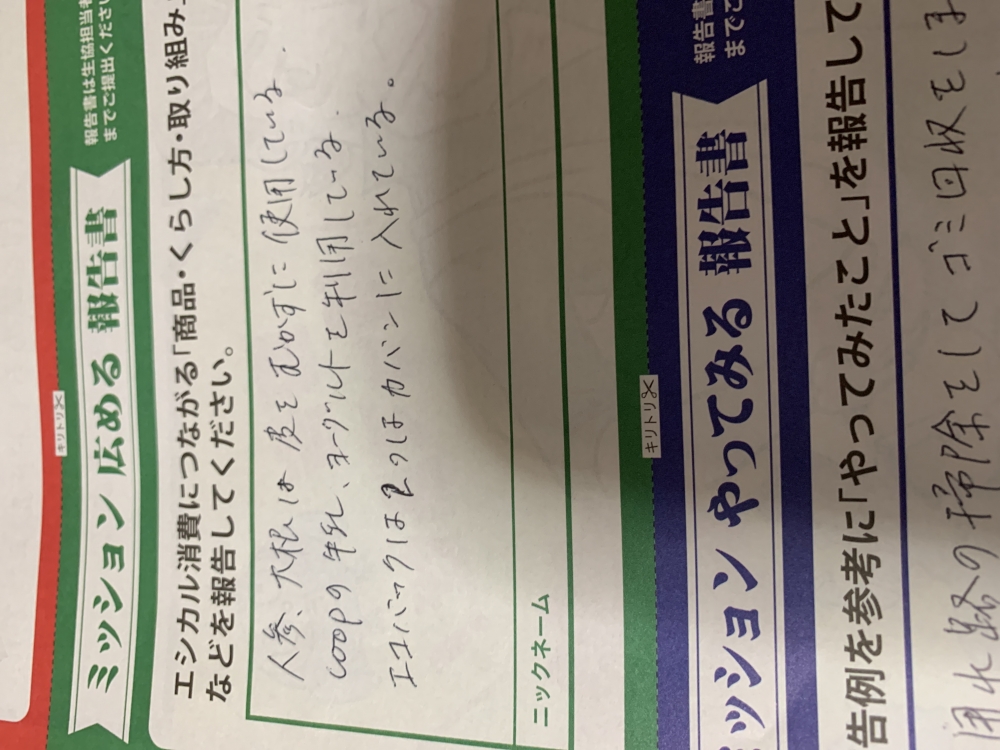 報告書は生協担当者
までご提出ください
ミッション 広める 報告書
エシカル消費につながる「商品・くらし方・取り組み」
などを報告してください。
人参、大根は皮をむかずに使用している.
coopの牛乳、ヨーグルトを利用している.
エコバックは2つはカバンに入れている。
ニックネーム
キリトリ
キリトリ
報告書
までご
ミッション やってみる 報告書
告例を参考に「やってみたこと」を報告して
の掃除をしてゴミ回収をしま